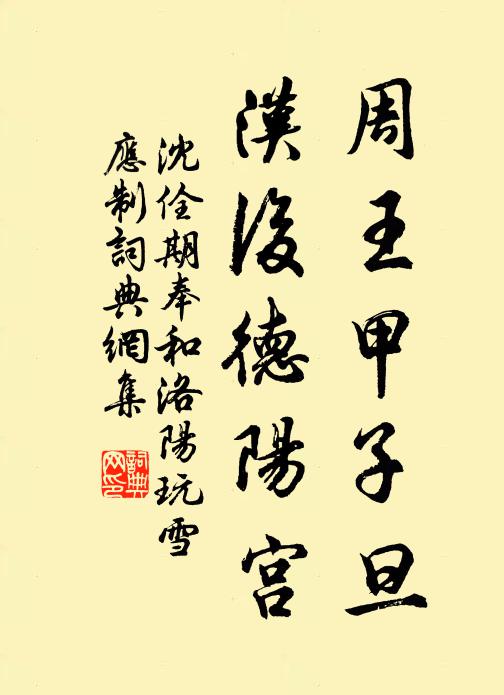 周王甲子旦
漢後德陽宮
沈佺期奉和洛陽玩雪
應制詞典網集
詞典
网印